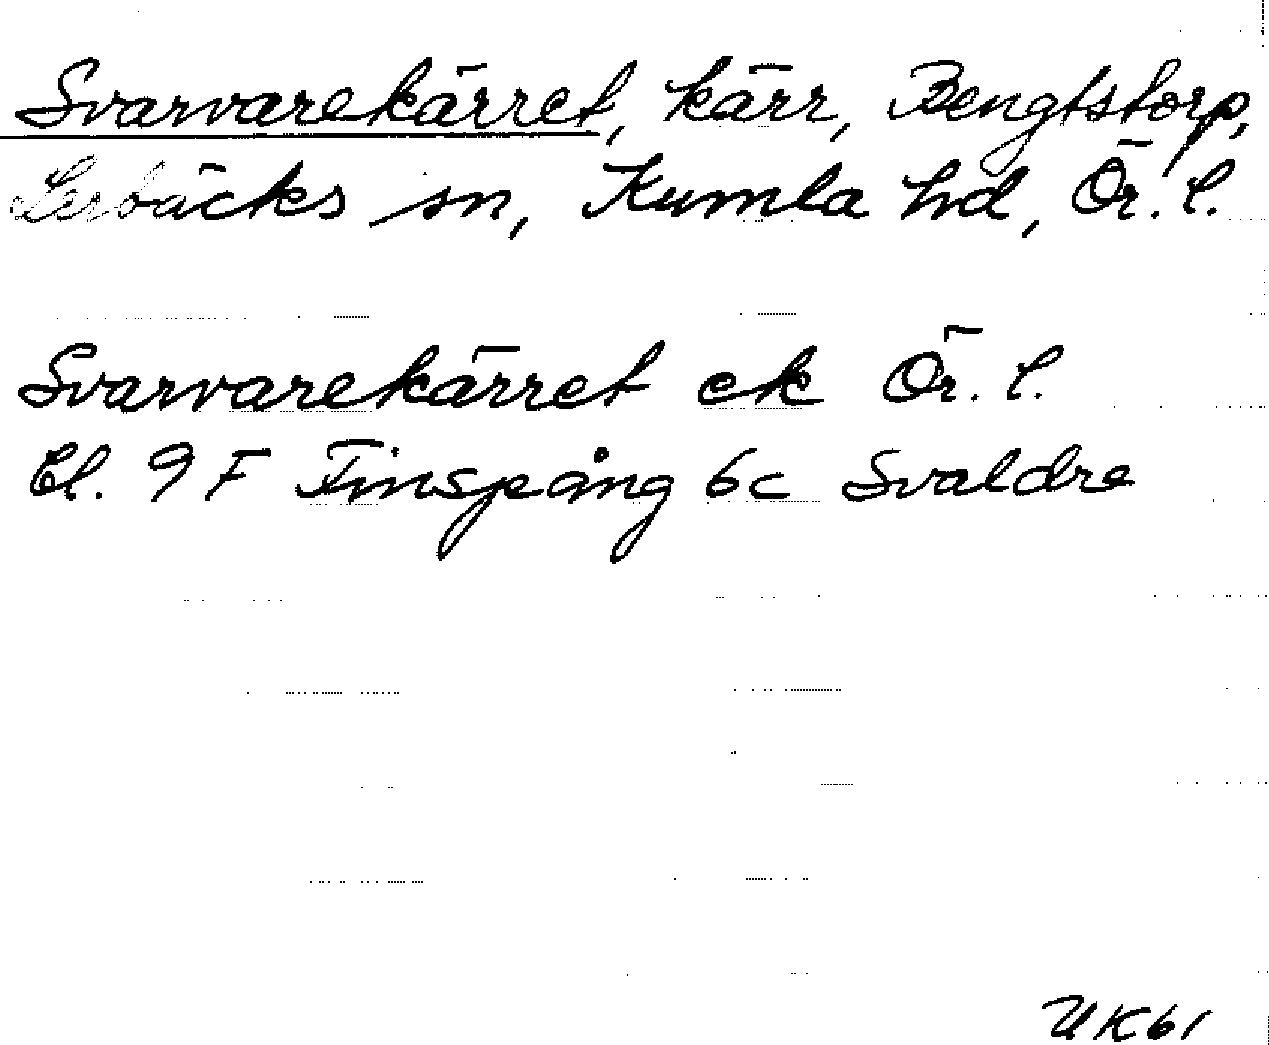 Svarvarekärret, kärr, Bengtstorp,
Lerbäcks sn, Kumla hd, Ör. l.
Svarvarekärret ek Ör. l.
Bl. 9 F Finspång 6c Svaldre
UK61